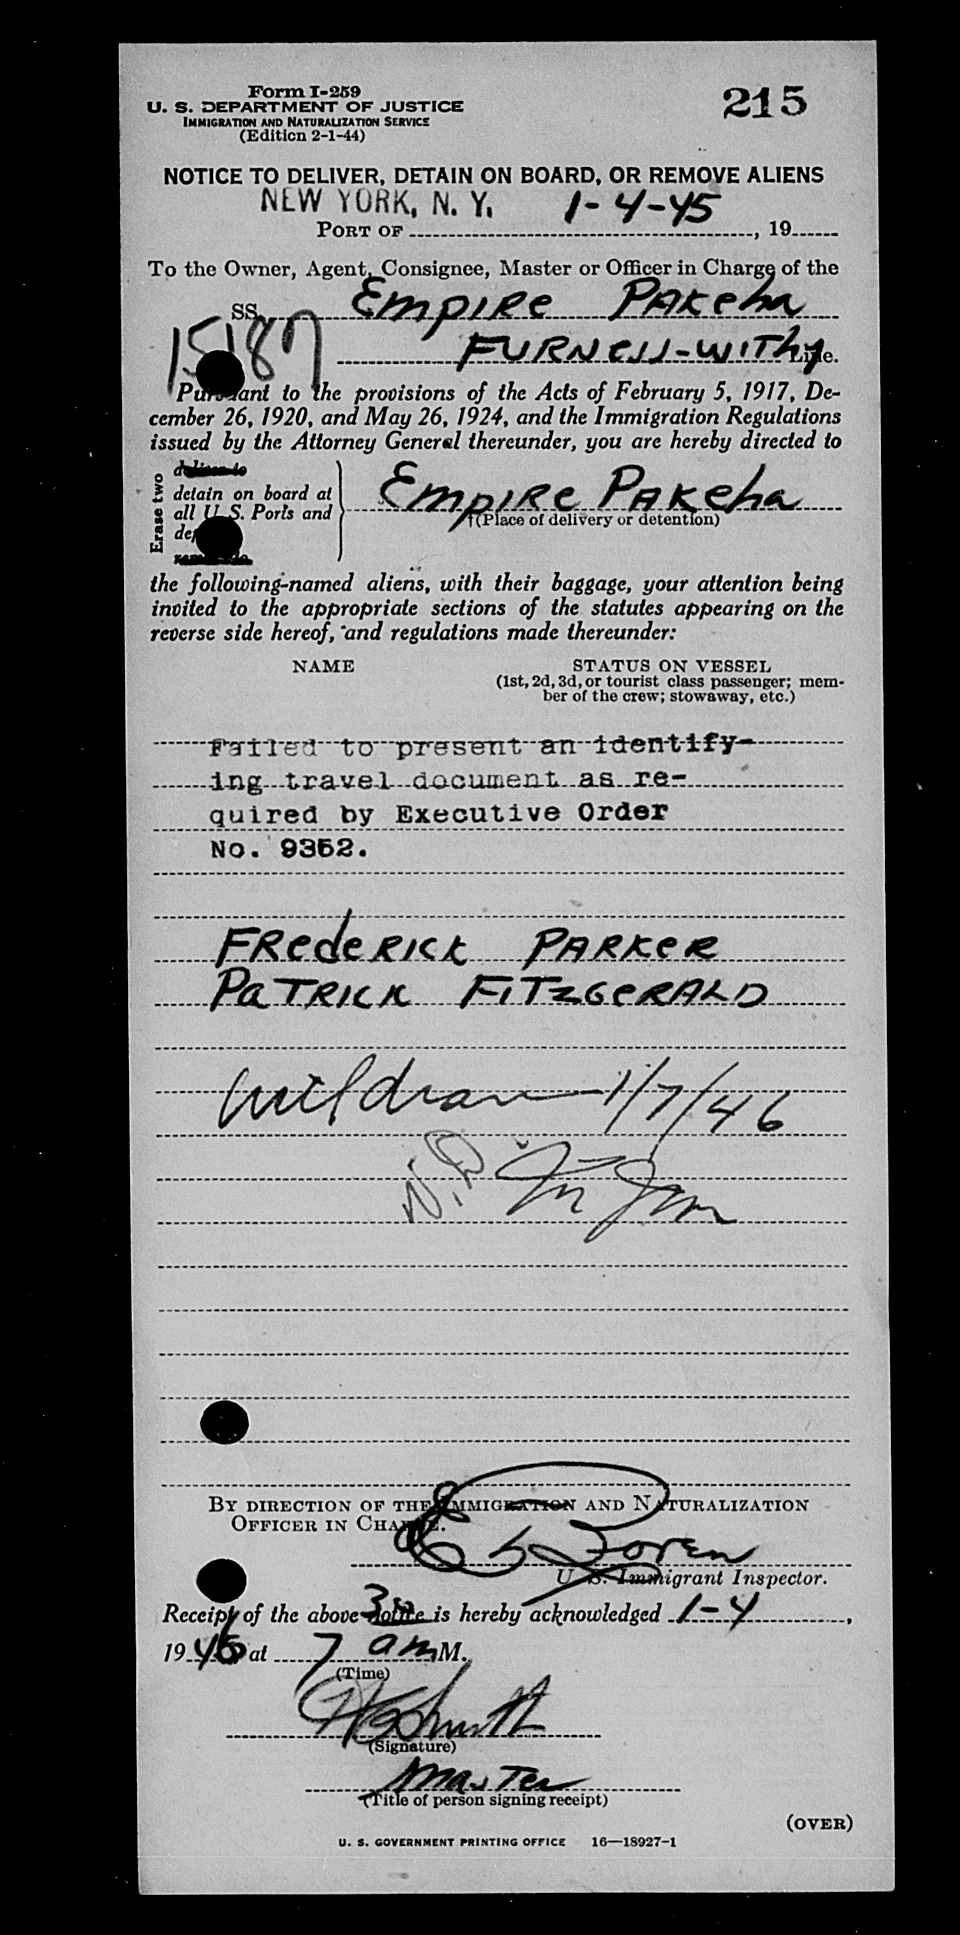 Form I-259
215
U. S. DEPARTMENT OF JUSTICE
IMMIGRATION AND NATURALIZATION SERVICE
(Edition 2-1-44)
NOTICE TO DELIVER, DETAIN ON BOARD, OR REMOVE ALIENS
NEW YORK, N. Y. 1-4-45
PORT OF , 19
To the Owner, Agent, Consignee, Master or Officer in Charge of the
SS. Empire Pakeha
15187
FURNESS-WITHY Line.
Pursuant to the provisions of the Acts of February 5, 1917, De-
cember 26, 1920, and May 26, 1924, and the Immigration Regulations
issued by the Attorney General thereunder, you are hereby directed to
Erase two
deliver to
detain on board at
all U. S. Ports and
Empire Pakeha
(Place of delivery or detention)
the following-named aliens, with their baggage, your attention being
invited to the appropriate sections of the statutes appearing on the
reverse side hereof, and regulations made thereunder:
NAME STATUS ON VESSEL
(1st, 2d, 3d, or tourist class passenger; mem-
ber of the crew; stowaway, etc.)
Failed to present an identify-
ing travel document as re-
quired by Executive Order
No. 9352.
FREDERICK PARKER
PATRICK FITZGERALD
1/7/46
BY DIRECTION OF THE IMMIGRATION AND NATURALIZATION
OFFICER IN CHARGE.
U. S. Immigrant Inspector.
Receipt of the above notice is hereby acknowledged 1-4,
1945 at 7 am M.
(Time)
(Signature)
Master
(Title of person signing receipt)
(OVER)
U. S. GOVERNMENT PRINTING OFFICE 16—18927-1